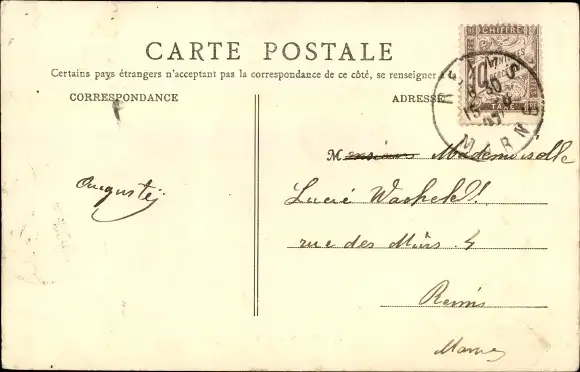 CARTE POSTALE
Certains pays étrangers n'acceptant pas la correspondance de ce côté, se renseigner à
CORRESPONDANCE
ADRESSE
CHIFFRE
10
TAXE
REIMS
6-30
15
07
MARNE
M Mademoiselle
Auguste
Lucie
rue des Murs 4
Reims
Marne